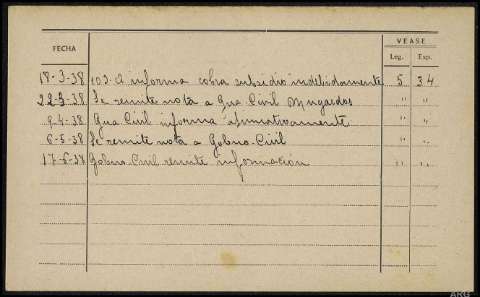 FECHA VÉASE
Leg. Exp.
18-3-38 103-A informa cobra subsidio indebidamente 5 34
22-3-38 Se remite nota a Gua Civil Mugardos " "
9-4-38 Gua Civil informa afirmativamente " "
6-5-38 Se remite nota a Gobno-Civil " "
17-6-38 Gobno-Civil remite información " "
ARG